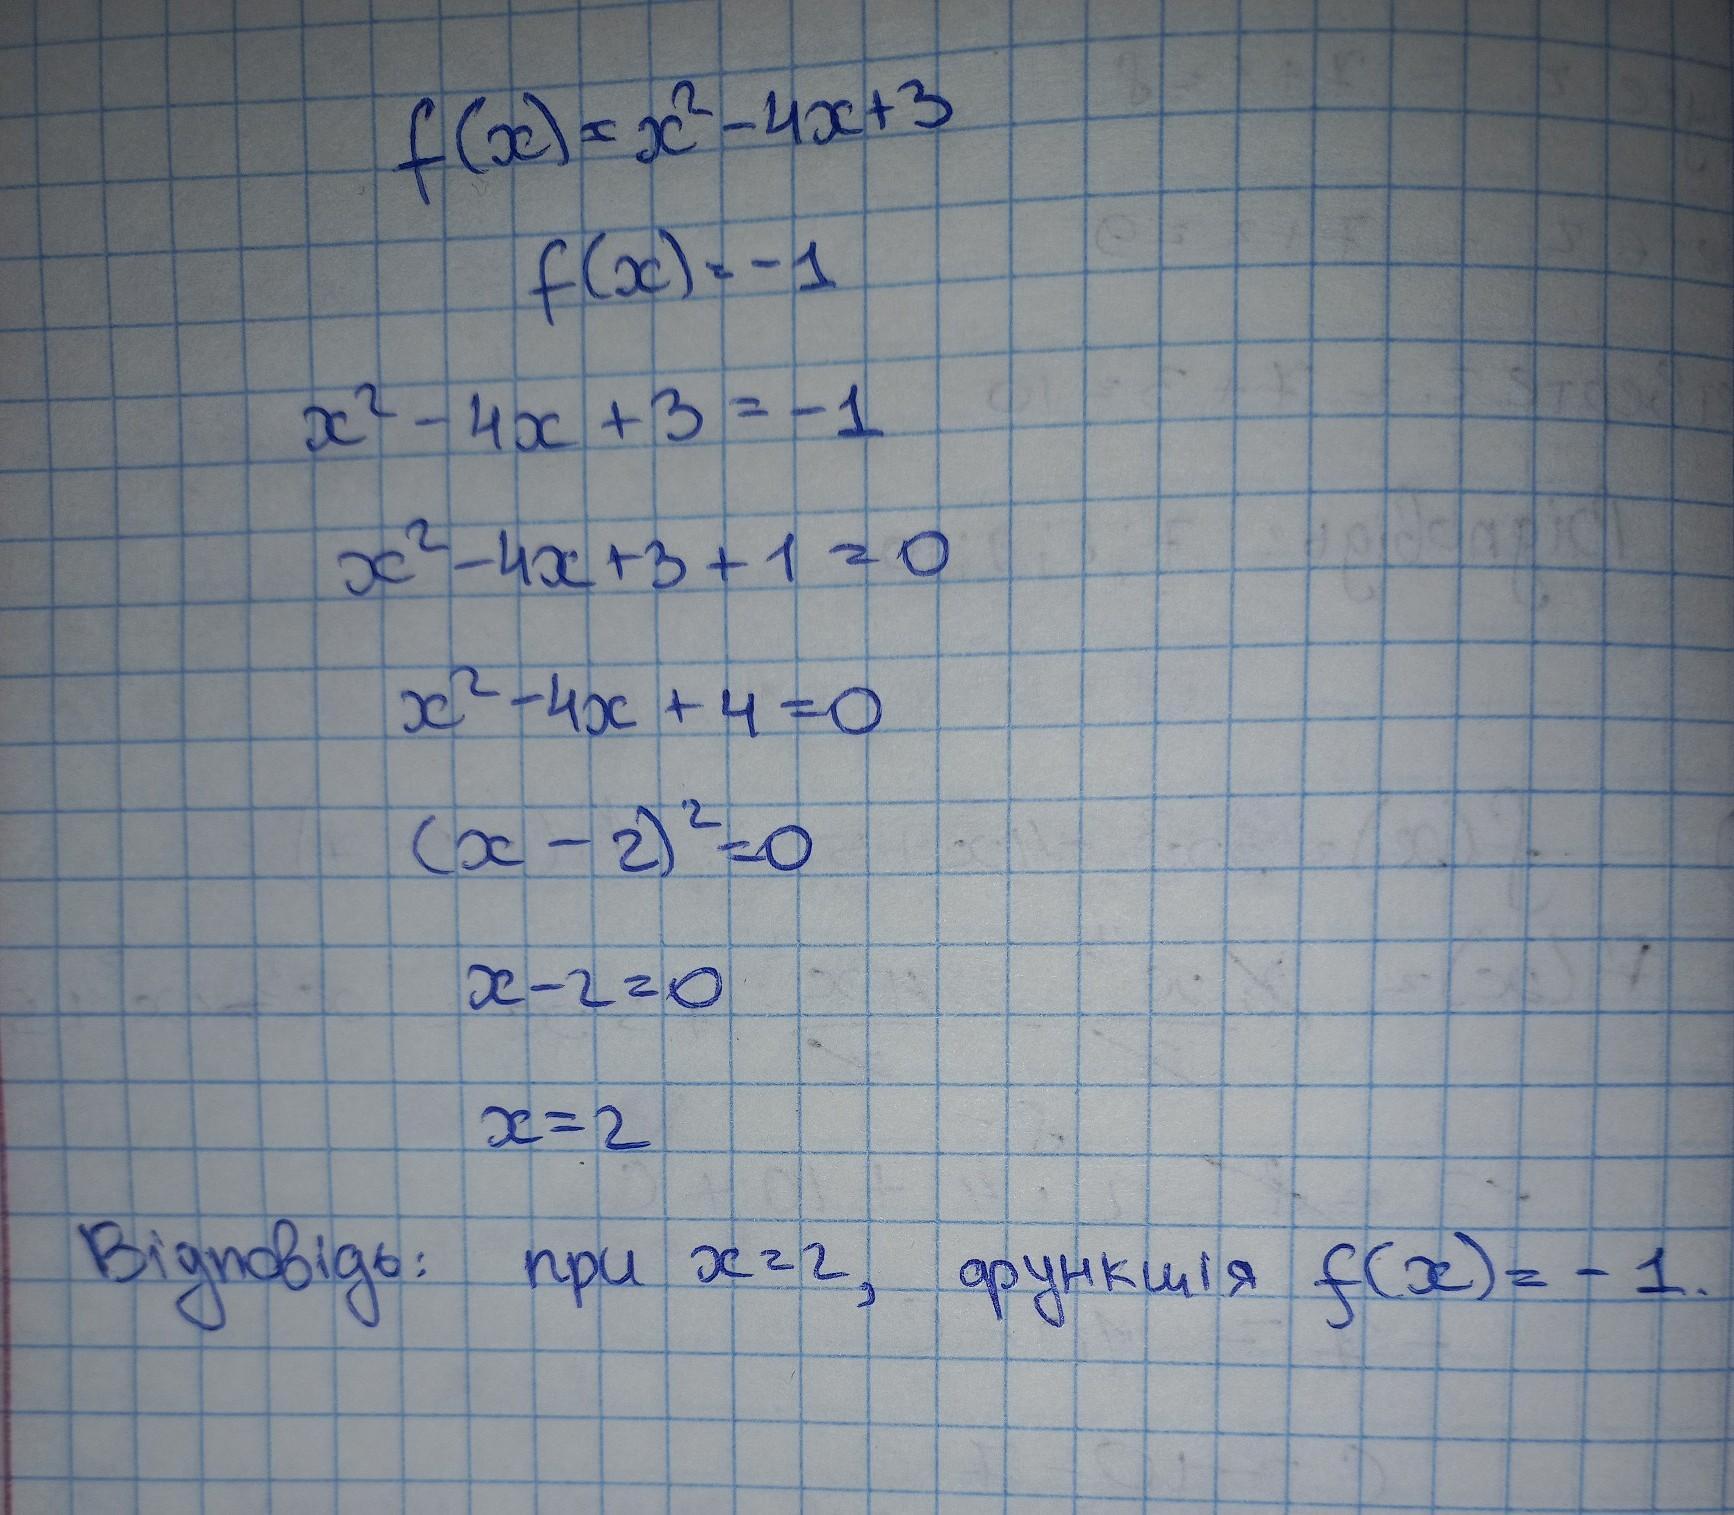 f(x)=x²-4x+3
f(x)=-1
x²-4x+3=-1
x²-4x+3+1=0
x²-4x+4=0
(x-2)²=0
x-2=0
x=2
Відповідь: при x=2, функція f(x)=-1.